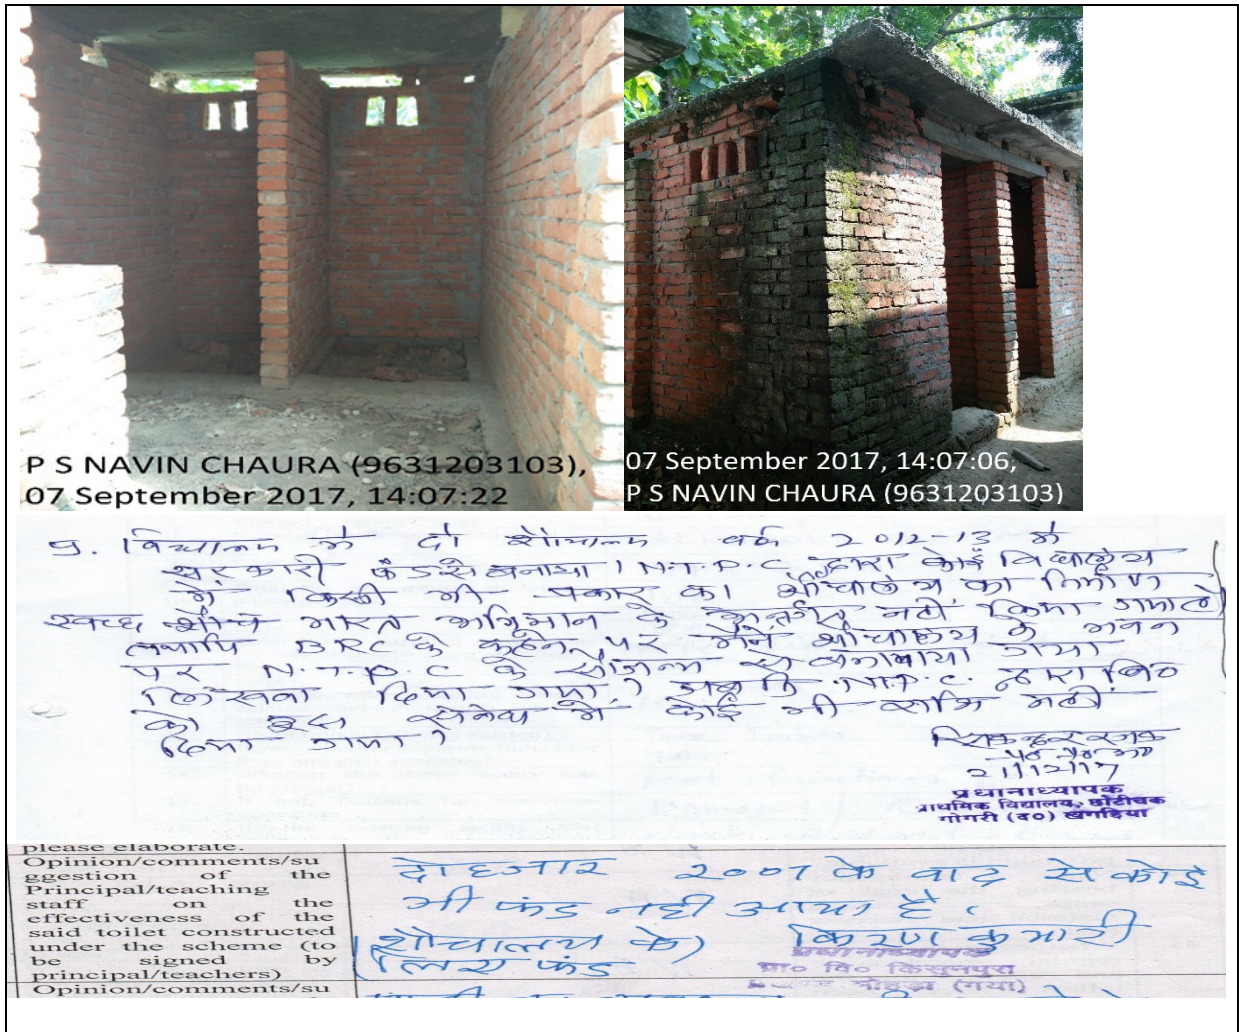 P S NAVIN CHAURA (9631203103),
07 September 2017, 14:07:22
07 September 2017, 14:07:06,
P S NAVIN CHAURA (9631203103)
9. विद्यालय में दो शौचालय वर्ष 2012-13 में
सरकारी फंड से बनाया। N.T.P.C द्वारा कोई विद्यालय
में किसी भी प्रकार का शौचालय का निर्माण
स्वच्छ शौच भारत अभियान के अन्तर्गत नहीं किया गया है
तथापि BRC के कहने पर मैंने शौचालय के भवन
पर N.T.P.C के सौजन्य से बनवाया गया
लिखवा दिया गया। जबकि N.T.P.C. द्वारा वि०
को इस में कोई भी राशि नहीं
दिया गया।
21/12/17
प्रधानाध्यापक
प्राथमिक विद्यालय, छोटीचक
गोगरी (द०) खगड़िया
please elaborate.
Opinion/comments/su
ggestion of the
Principal/teaching
staff on the
effectiveness of the
said toilet constructed
under the scheme (to
be signed by
principal/teachers)
दो हजार २००७ के बाद से कोई
भी फंड नहीं आया है।
(शौचालय के) किरण कुमारी
लिए फंड
प्रधानाध्यापक
प्रा० वि० किसुनपुरा
(गया)
Opinion/comments/su